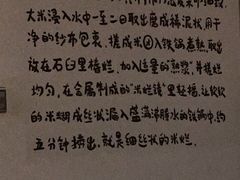 大米浸入水中一至二日取出磨成稀泥状,用干
净的纱布包裹、搓成米团入铁锅煮熟,取出
放在石臼里捶烂、加入适量的“熟浆”,并搓烂
均匀,在金属制成的“米烂镜”里轻搓,让软软
的米糊成丝状漏入盛满沸腾水的铁锅中,约
五分钟捞出,就是细丝状的米烂。